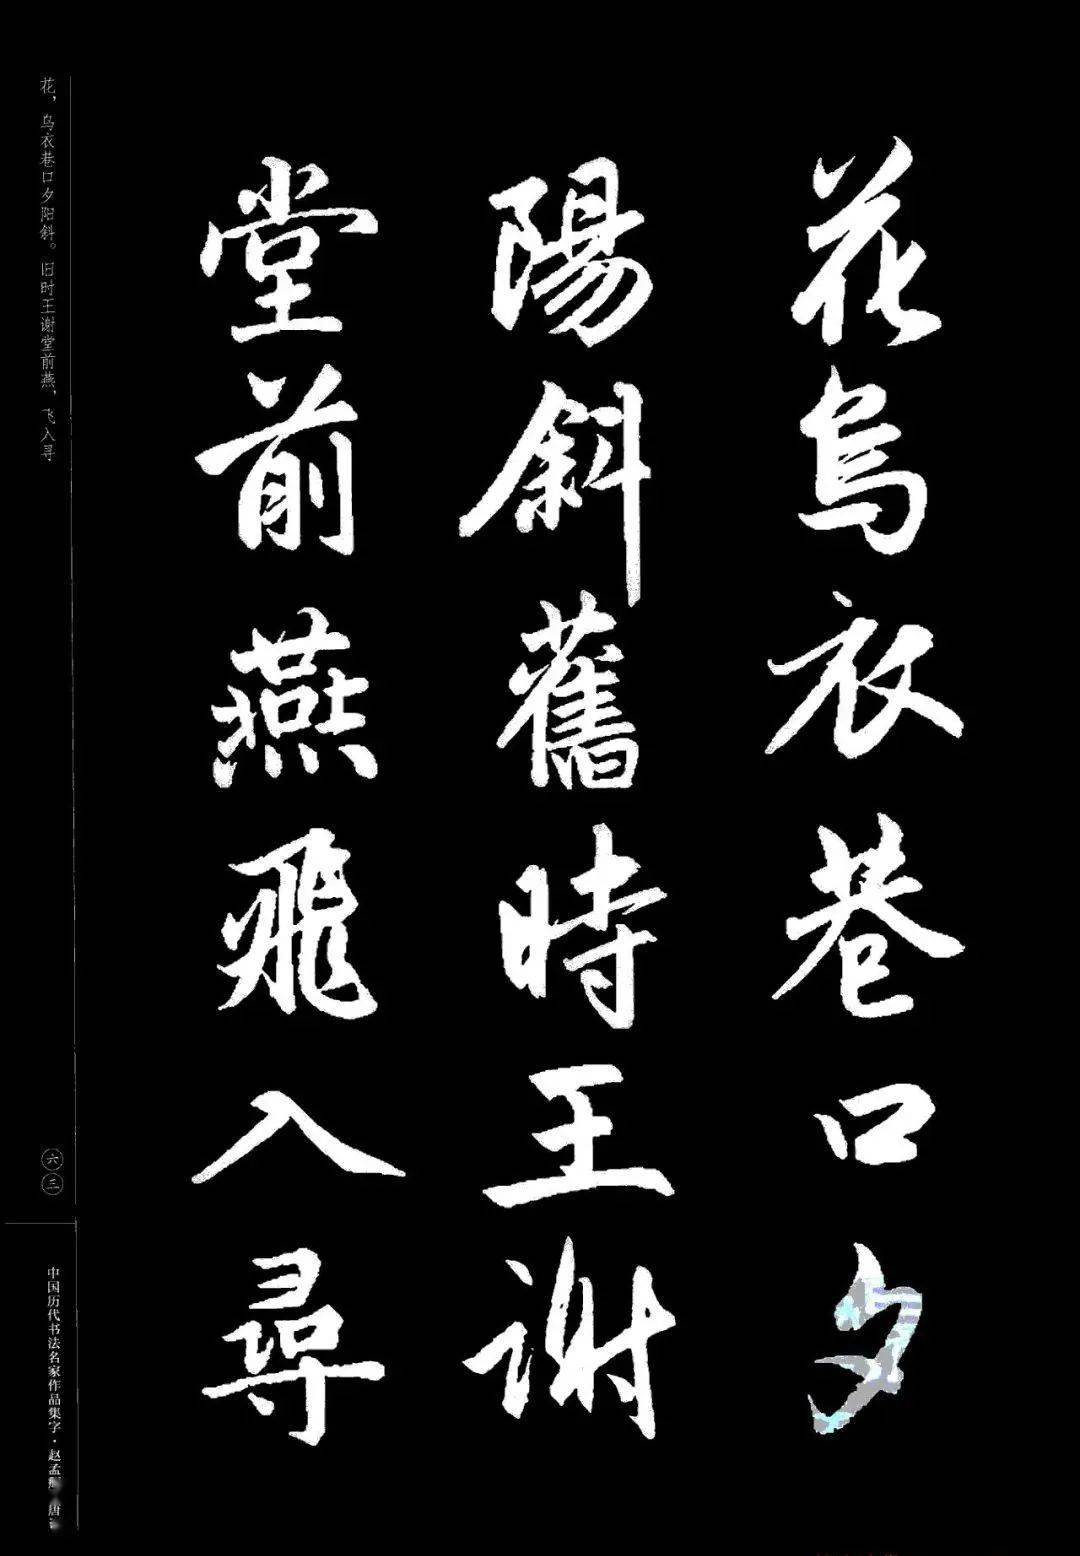 花烏衣巷口夕
陽斜舊時王謝
堂前燕飛入尋
花，乌衣巷口夕阳斜。旧时王谢堂前燕，飞入寻
六三
中国历代书法名家作品集字·赵孟